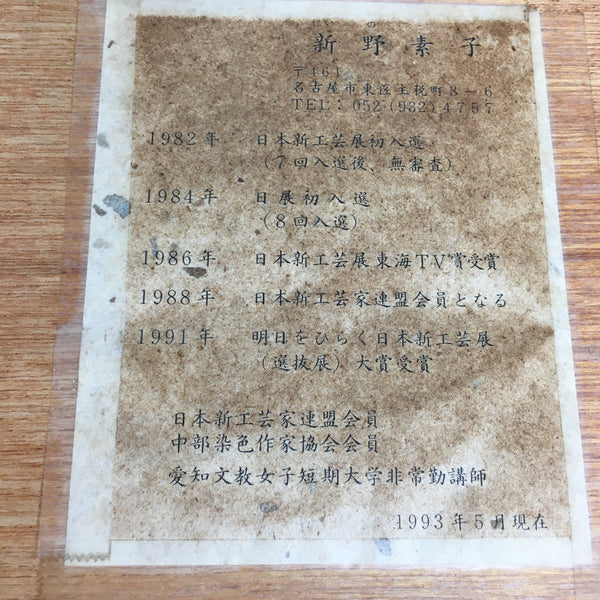 にい の
新野素子
〒461
名古屋市東区主税町3-6
TEL: 052-(932)4757
1982年 日本新工芸展初入選
(7回入選後、無審査)
1984年 日展初入選
(8回入選)
1986年 日本新工芸展東海TV賞受賞
1988年 日本新工芸家連盟会員となる
1991年 明日をひらく日本新工芸展
(選抜展) 大賞受賞
日本新工芸家連盟会員
中部染色作家協会会員
愛知文教女子短期大学非常勤講師
1993年5月現在